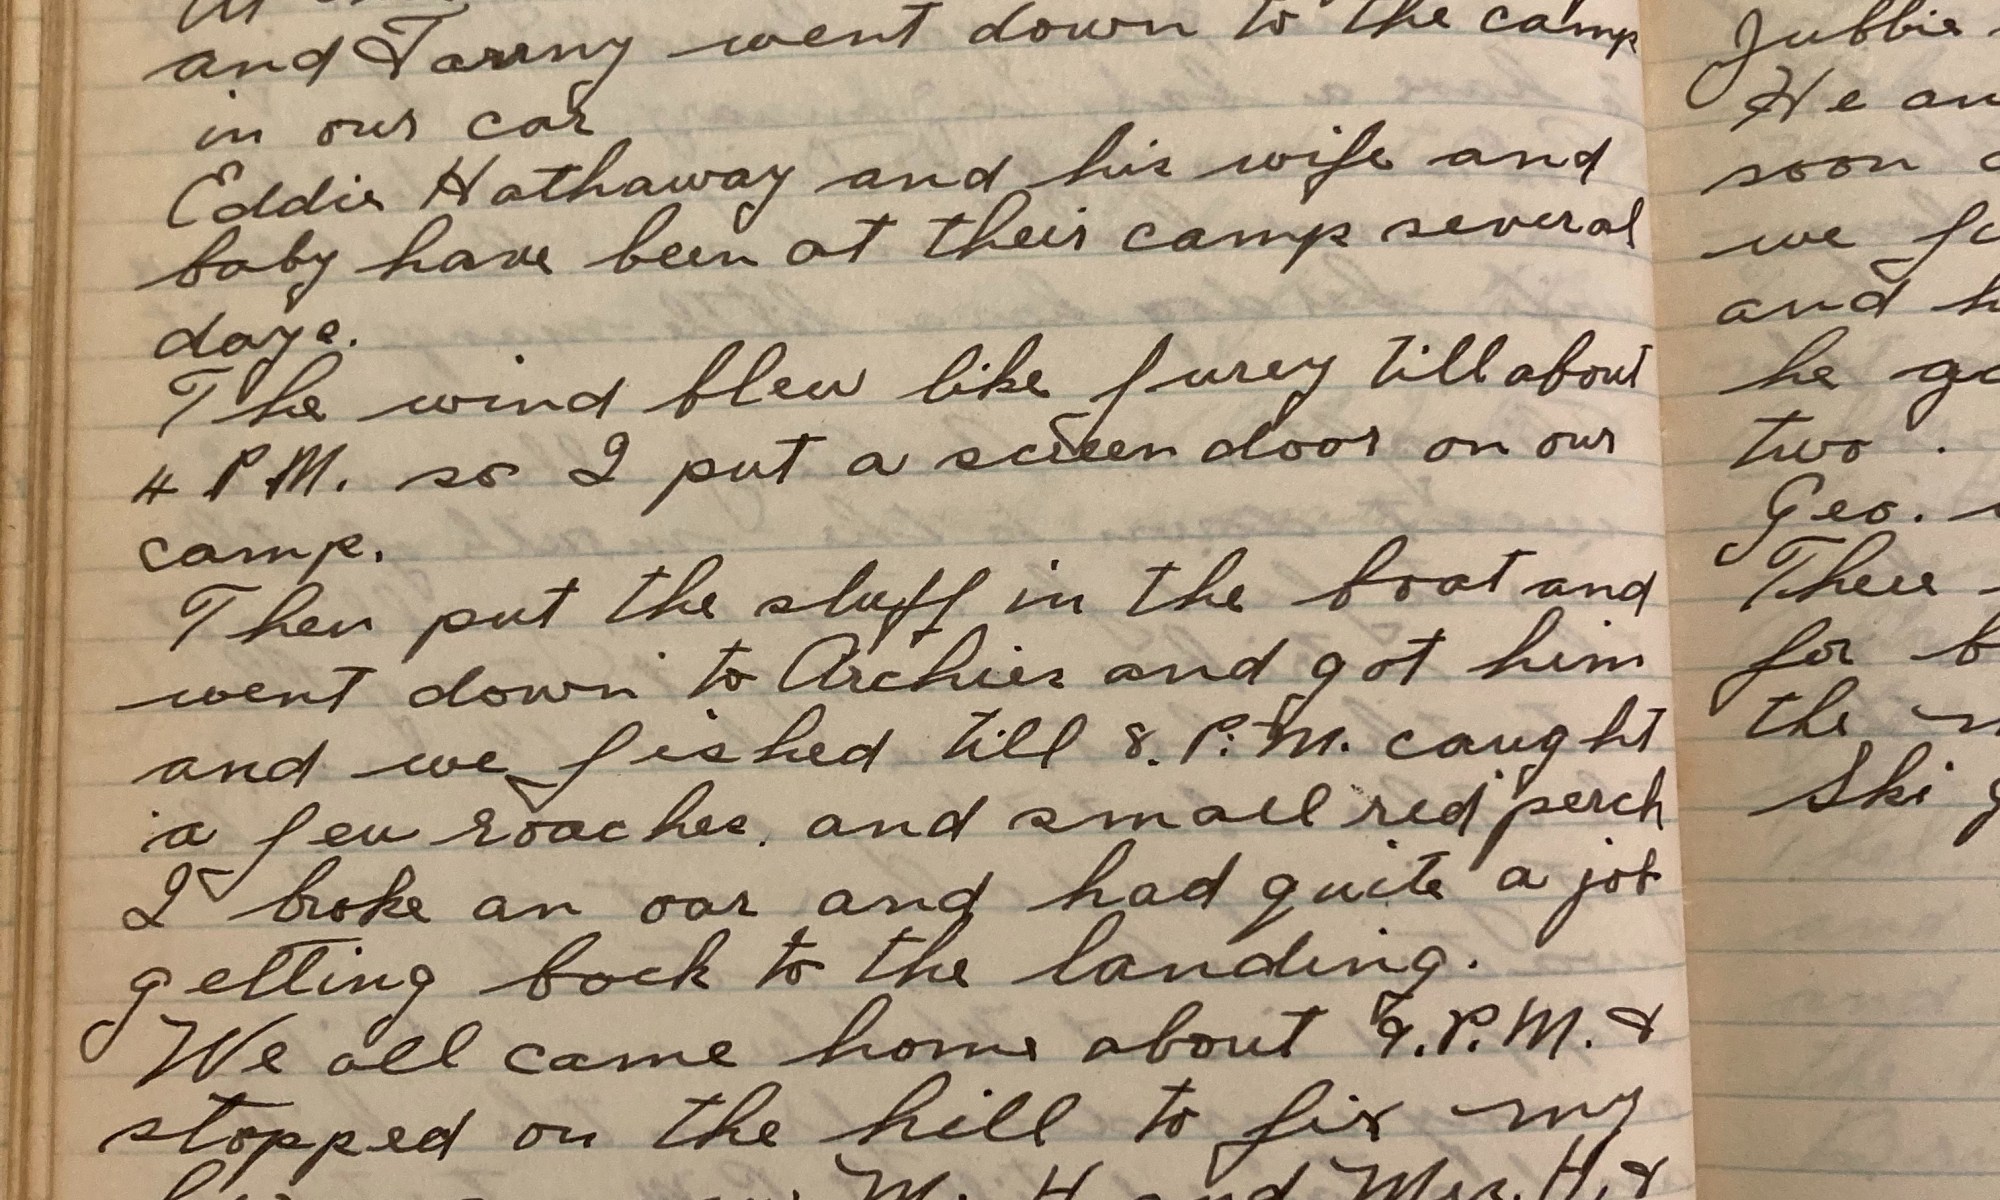 and Fanny went down to the camp
in our car
Eddie Hathaway and his wife and
baby have been at their camp several
days.
The wind blew like furey till about
4 P.M. so I put a screen door on our
camp.
Then put the stuff in the boat and
went down to Archies and got him
and we fished till 8. P.M. caught
a few roaches. and small red perch
I broke an oar and had quite a job
getting back to the landing.
We all came home about 9.P.M. &
stopped on the hill to fix my
M. H and Mrs. H. &
Jubbie
He
soon
we
and
he
two.
Geo.
There
for
the
Ski